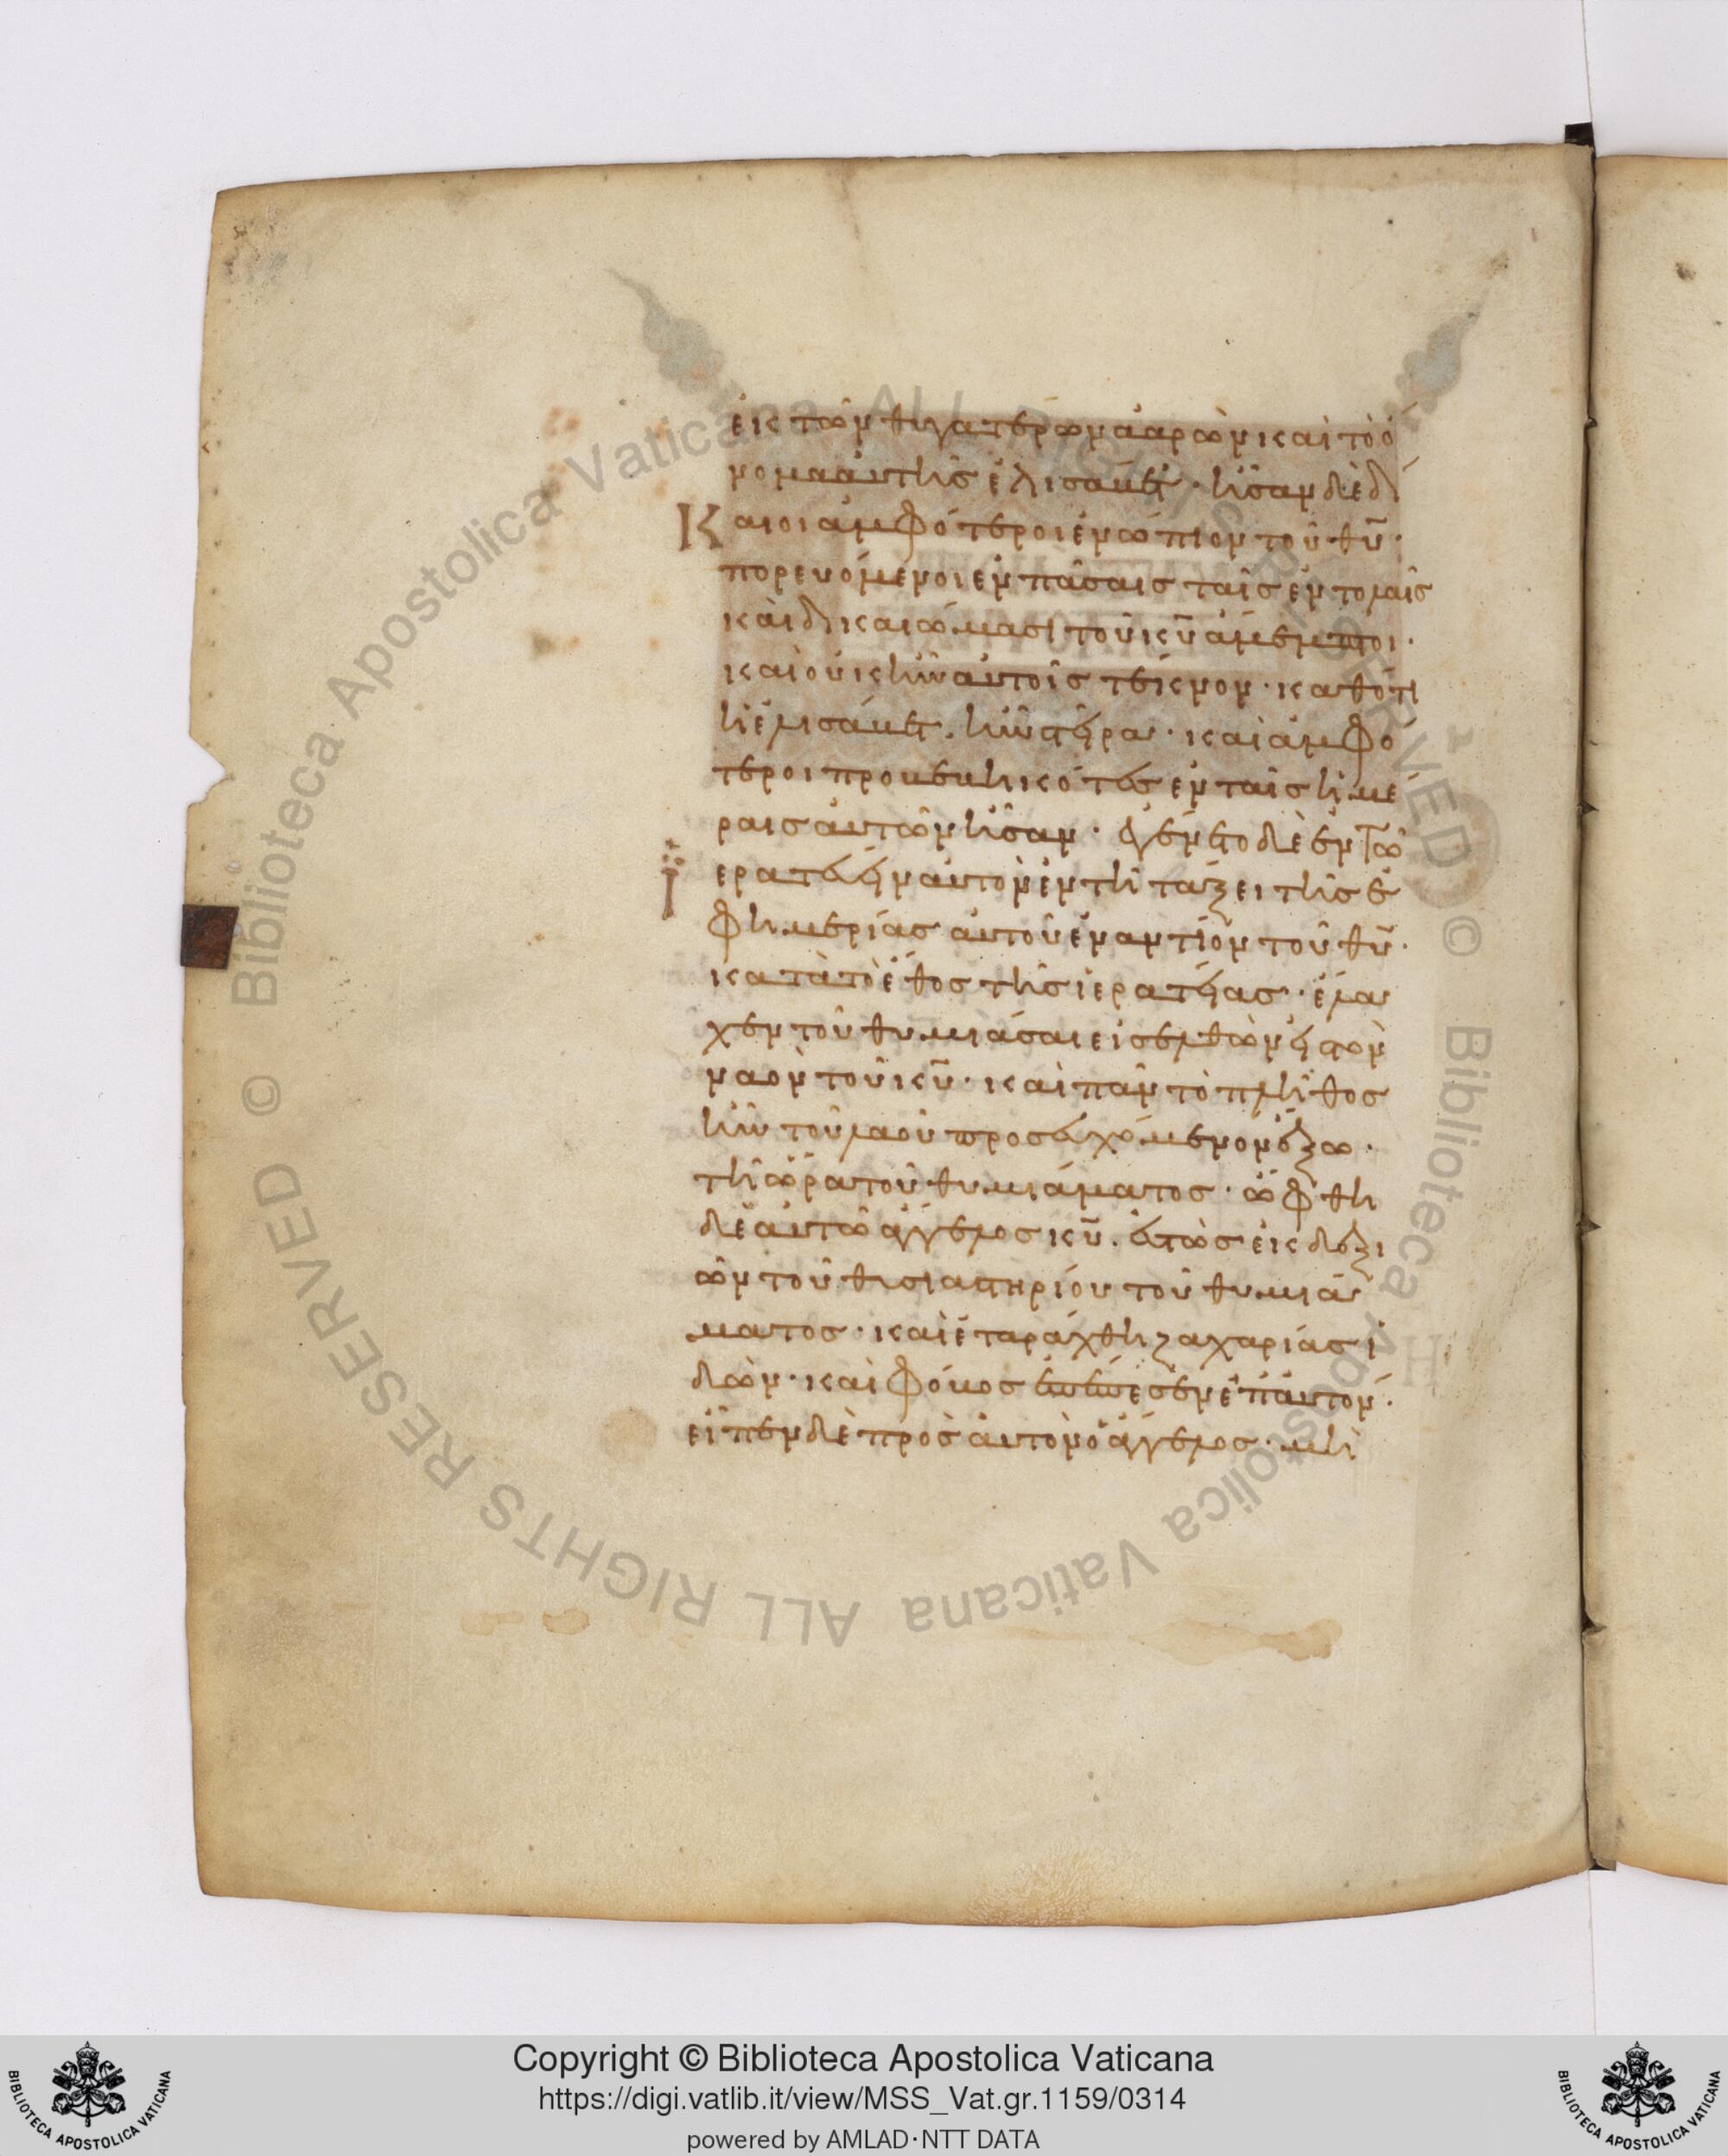 ἐκ τῶν θυγατέρων ἀαρὼν καὶ τὸ ὄ
νομα αὐτῆς ἐλισάβετ · ἦσαν δὲ δί
Καιοι ἀμφότεροι ἐνώπιον τοῦ θυ̅ ·
πορευόμενοι ἐν πάσαις ταῖς ἐντολαῖς
καὶ δικαιώμασι τοῦ κυ̅ ἄμεμπτοι ·
καὶ οὐκ ἦν αὐτοῖς τέκνον · καθότι
ἡ ἐλισάβετ . ἦν στεῖρα · καὶ ἀμφό
τεροι προβεβηκότες ἐν ταῖς ἡμέ
ραις αὐτῶν ἦσαν · ἐγένετο δὲ ἐν τῶ
ἱερατεύειν αὐτὸν ἐν τῆ τάξει τῆς ἐ
φημερίας αὐτοῦ ἐναντίον τοῦ θυ̅ ·
κατὰ τὸ ἔθος τῆς ἱερατείας · ἔλα
χεν τοῦ θυμιᾶσαι εἰσελθὼν εἰς τὸν
ναὸν τοῦ κυ̅ · καὶ πᾶν τὸ πλῆθος
ἦν τοῦ λαοῦ προσευχόμενον ἔξω ·
τῆ ὥρα τοῦ θυμιάματος · ὤφθη
δὲ αὐτῶ ἄγγελος κυ̅ . ἑστὼς ἐκ δεξι
ῶν τοῦ θυσιαστηρίου τοῦ θυμιά
ματος · καὶ ἐταράχθη ζαχαρίας ἰ
δών · καὶ φόβος ἐπέπεσεν ἐπ᾽ αὐτόν ·
εἶπεν δὲ πρὸς αὐτὸν ὁ ἄγγελος · μὴ
© Biblioteca Apostolica Vaticana ALL RIGHTS RESERVED © Biblioteca Apostolica Vaticana ALL RIGHTS RESERVED
BIBLIOTECA APOSTOLICA VATICANA
Copyright © Biblioteca Apostolica Vaticana
https://digi.vatlib.it/view/MSS_Vat.gr.1159/0314
powered by AMLAD·NTT DATA
BIBLIOTECA APOSTOLICA VATICANA